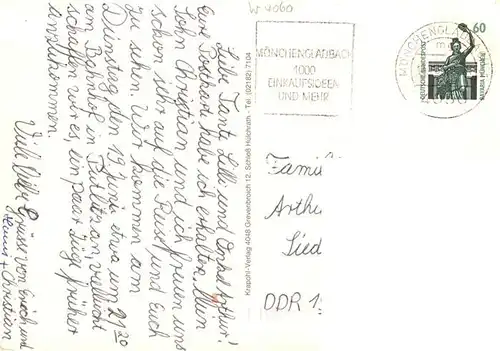 Liebe Tante Lilli und Onkel Arthur!
Eure Postkarte habe ich erhalten. Mein
Sohn Christian und ich freuen uns
schon sehr auf die Reise und Euch
zu sehen. Wir kommen am
Dienstag den 19. Juni etwa um 21.20
am Bahnhof in Putlitz an, vielleicht
schaffen wir es, ein paar Züge früher
einzukommen.
Viele liebe Grüsse von Erich und
+ Christian
Krapohl-Verlag 4048 Grevenbroich 12, Schloß Hülchrath · Tel. (02182) 7104
W 4060
MÖNCHENGLADBACH
1000
EINKAUFSIDEEN
UND MEHR
MÖNCHENGLADBACH
60
DEUTSCHE BUNDESPOST
BAVARIA MÜNCHEN
Famil
Arthu
Lied
DDR 1